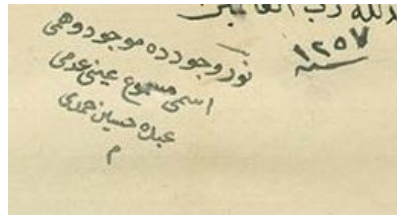 لله رب العالمين
سنه ١٢٥٧
نور وجود ده موجود وهمى
اسمى مسموع عينى عدمى
عبده حسين حمدى
م